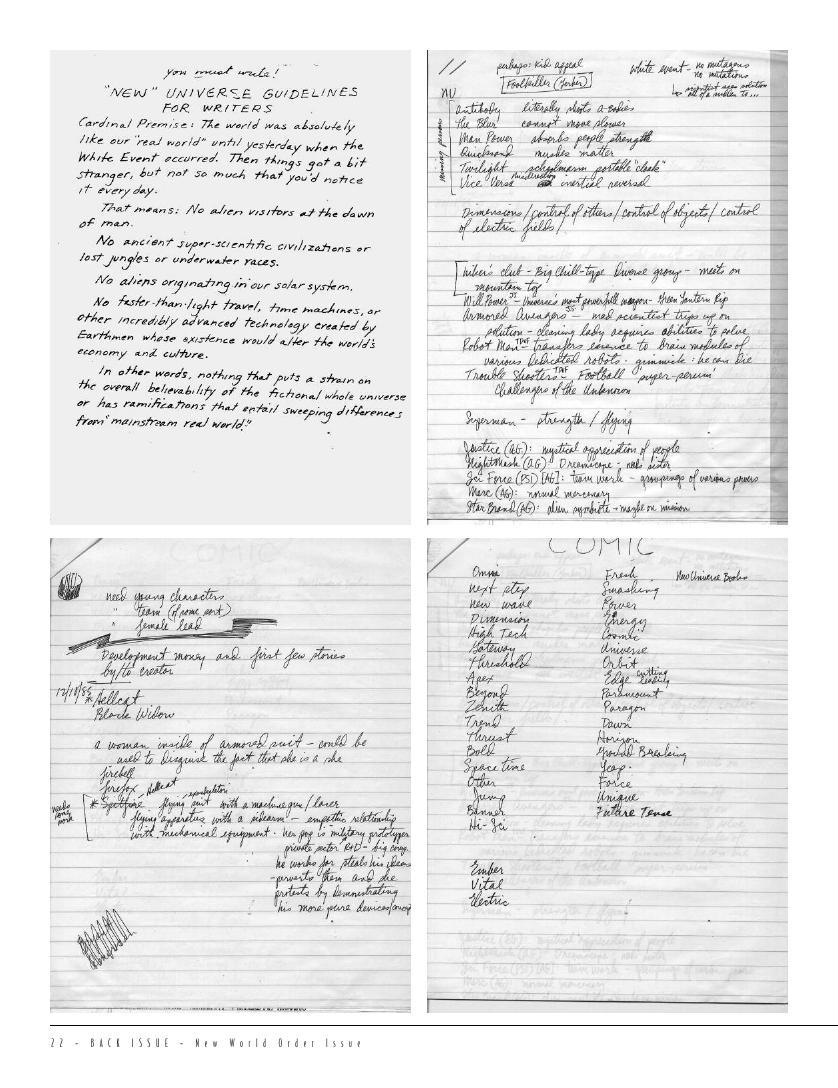 you must write!
"NEW" UNIVERSE GUIDELINES
FOR WRITERS
Cardinal Premise: The world was absolutely
like our "real world" until yesterday when the
White Event occurred. Then things got a bit
stranger, but not so much that you'd notice
it every day.
That means: No alien visitors at the dawn
of man.
No ancient super-scientific civilizations or
lost jungles or underwater races.
No aliens originating in our solar system.
No faster-than-light travel, time machines, or
other incredibly advanced technology created by
Earthmen whose existence would alter the world's
economy and culture.
In other words, nothing that puts a strain on
the overall believability of the fictional whole universe
or has ramifications that entail sweeping differences
from "mainstream real world."
//
perhaps: kid appeal
Footkiller (Yorker)
white event - no mutagens
no mutations
NU
antibody literally shoots a-bodies
The Blur cannot move slower
Man Power absorbs people strength
Quicksand mushes matter
Twilight schoolmarm portable "cloak"
Vice Versa inertial reversal
Dimensions/control of others/control of objects/control
of electric fields/
club - Big Chill-type Diverse group - meets on
mountain top
Will Power - Universe's most powerful weapon - Green Lantern Rip
Armored Avengers - mad scientist trips up on
solution - cleaning lady acquires abilities to solve
Robot Man - transfers essence to brain modules of
various Dedicated robots. gimmick: he can die
Trouble Shooters - Football "super-serum"
Challengers of the Unknown
Superman - strength / flying
Justice (AG): mystical appreciation of people
Nightmask (AG): Dreamscape - needs sister
Sci Force (PSI) [AG]: team work - groupings of various powers
Merc (AG): normal mercenary
Star Brand (AG): alien symbiote - maybe on mission
need young characters
" team (of some sort)
" female lead
Development money and first few stories
by/to creator
12/18/85
* Hellcat
Black Widow
a woman inside of armored suit - could be
used to Disguise the fact that she is a she
firebell
firefox Hellcat
needs
more
work
* Spitfire flying suit with a machine gun/laser
flying apparatus with a sidearm - empathic relationship
with mechanical equipment. her pop is military prototyper
private sector R&D - big comp.
he works for steals his ideas
- perverts them and she
protests by demonstrating
his more pure devices/concept
COMIC
Omni Fresh New Universe Books
next step Smashing
new wave Power
Dimension Energy
High Tech Cosmic
Gateway Universe
Threshold Orbit
Apex Edge cutting
leading
Beyond Paramount
Zenith Paragon
Trend Dawn
Thrust Horizon
Bold Ground Breaking
Space time Leap
Other Force
Jump Unique
Banner Future Tense
Hi-Sci
Ember
Vital
Electric
22 - BACK ISSUE - New World Order Issue